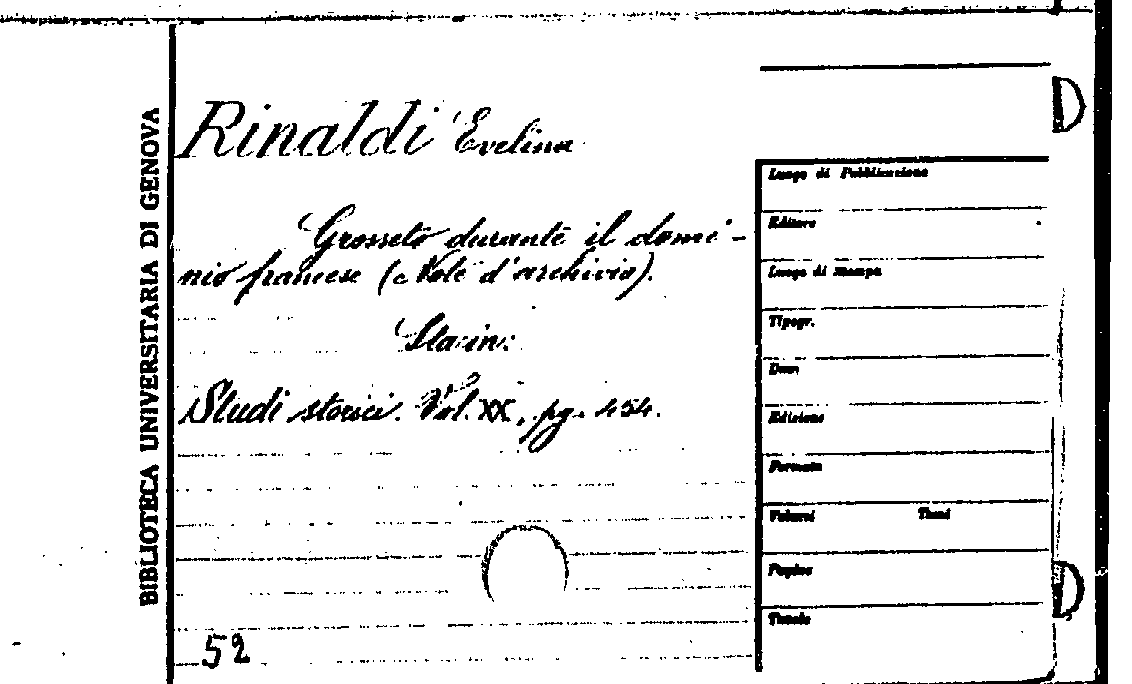 BIBLIOTECA UNIVERSITARIA DI GENOVA
Rinaldi Evelina
Grosseto durante il domi-
nio francese (Note d'archivio).
Sta in:
Studi storici. Vol. XX, pg. 454.
52
Luogo di Pubblicazione
Editore
Luogo di stampa
Tipogr.
Data
Edizione
Formato
Volumi Tomi
Pagine
Tavole